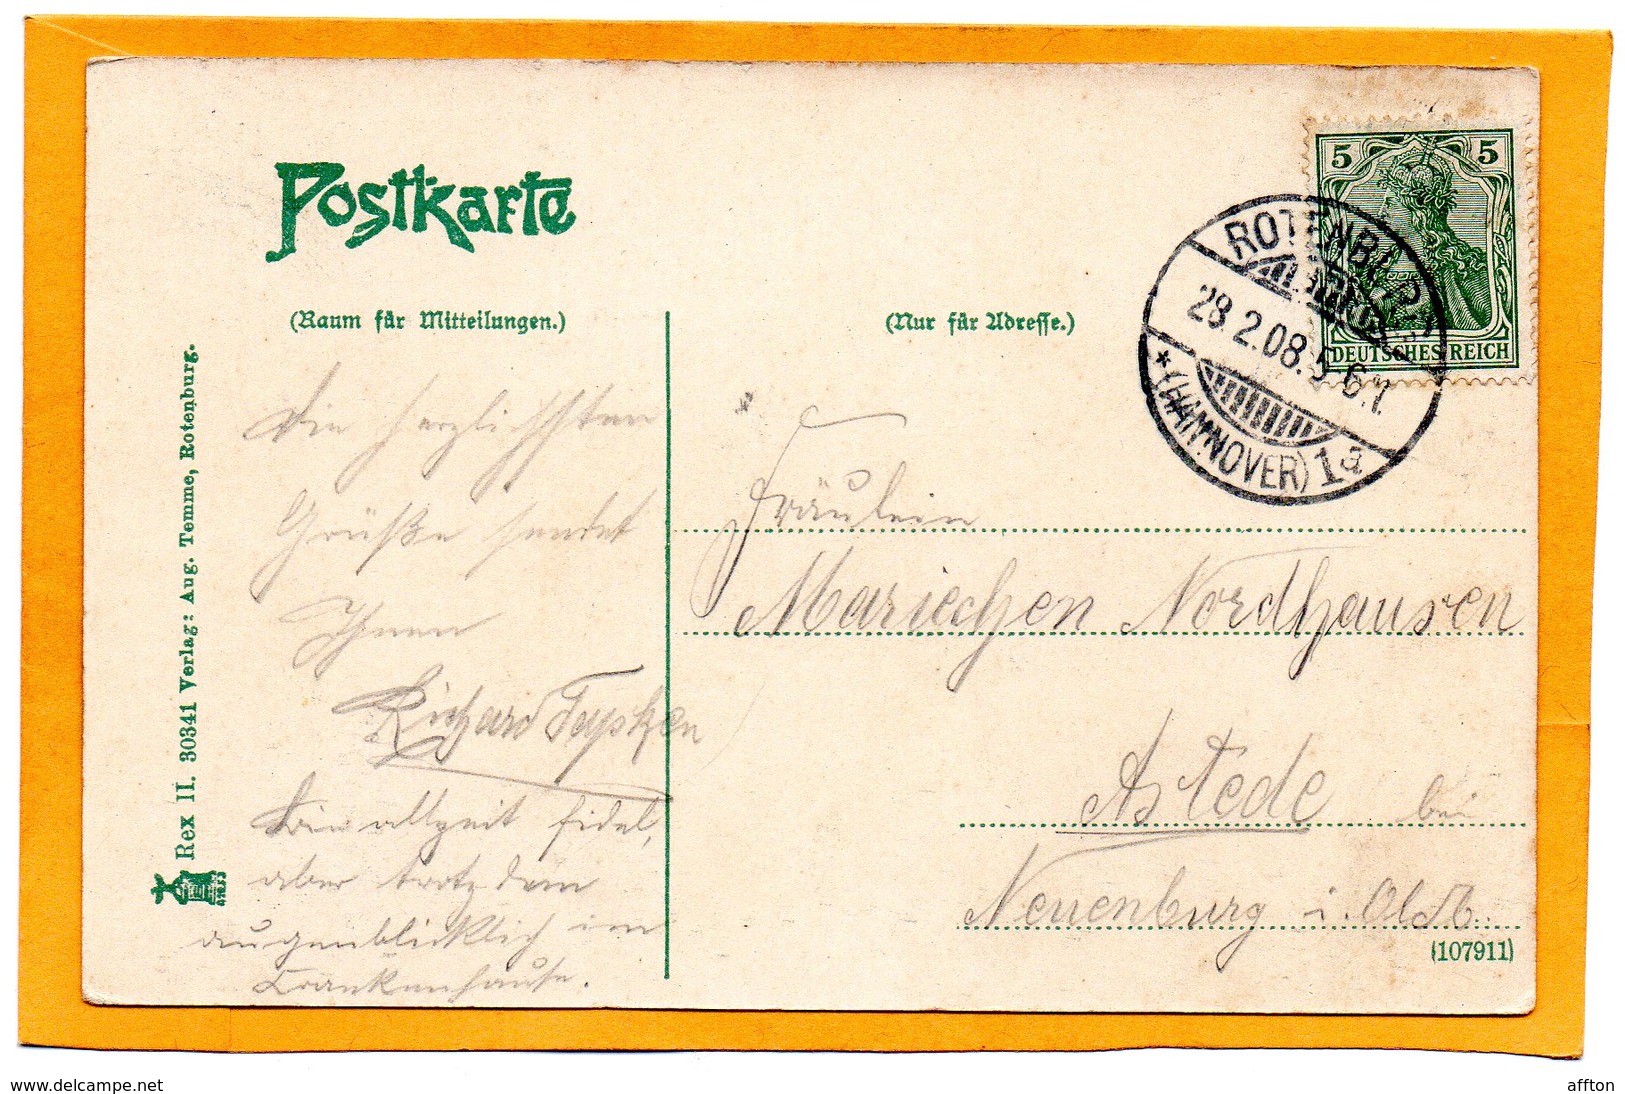 Postkarte
(Raum für Mitteilungen.)
(Nur für Adresse.)
5 5
DEUTSCHES REICH
ROTENBURG
28.2.08.5-6N.
* (HANNOVER) 1a
Rex II. 30341 Verlag: Aug. Temme, Rotenburg.
Die herzlichsten
Grüße sendet
Ihnen
Richard Tapken
Bin allzeit fidel,
aber trotzdem
augenblicklich im
Krankenhause.
Fräulein
Mariechen Nordhausen
Astede bei
Neuenburg i. Oldb.
(107911)
delcampe.net
affton